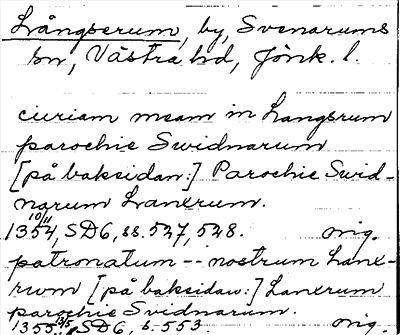 Långserum, by, Svenarums
sn, Västra hd, Jönk. l.
curiam meam in Langsrum
parochie Swidnarum
[på baksidan:] Parochie Swid-
narum Lanxrum.
1354 10/11, SD6, ss. 527, 528. orig.
patronatum -- nostrum Lanx-
rum [på baksidan:] Lanxrum
parochie Svidnarum.
1355 13/5, SD6, s. 553. orig.